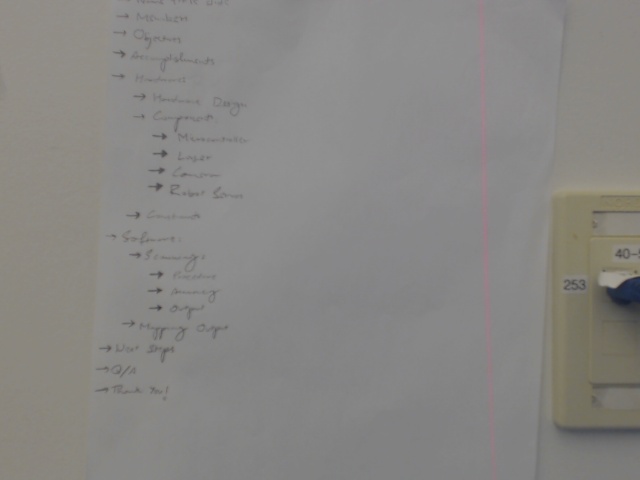 → Members
→ Objectives
→ Accomplishments
→ Hardware
→ Hardware Design
→ Components
→ Microcontroller
→ Laser
→ Camera
→ Robot Servo
→ Constraints
→ Software:
→ Scanning:
→ Procedure
→ Accuracy
→ Output
→ Mapping Output
→ Next Steps
→ Q/A
→ Thank You!
253
40-